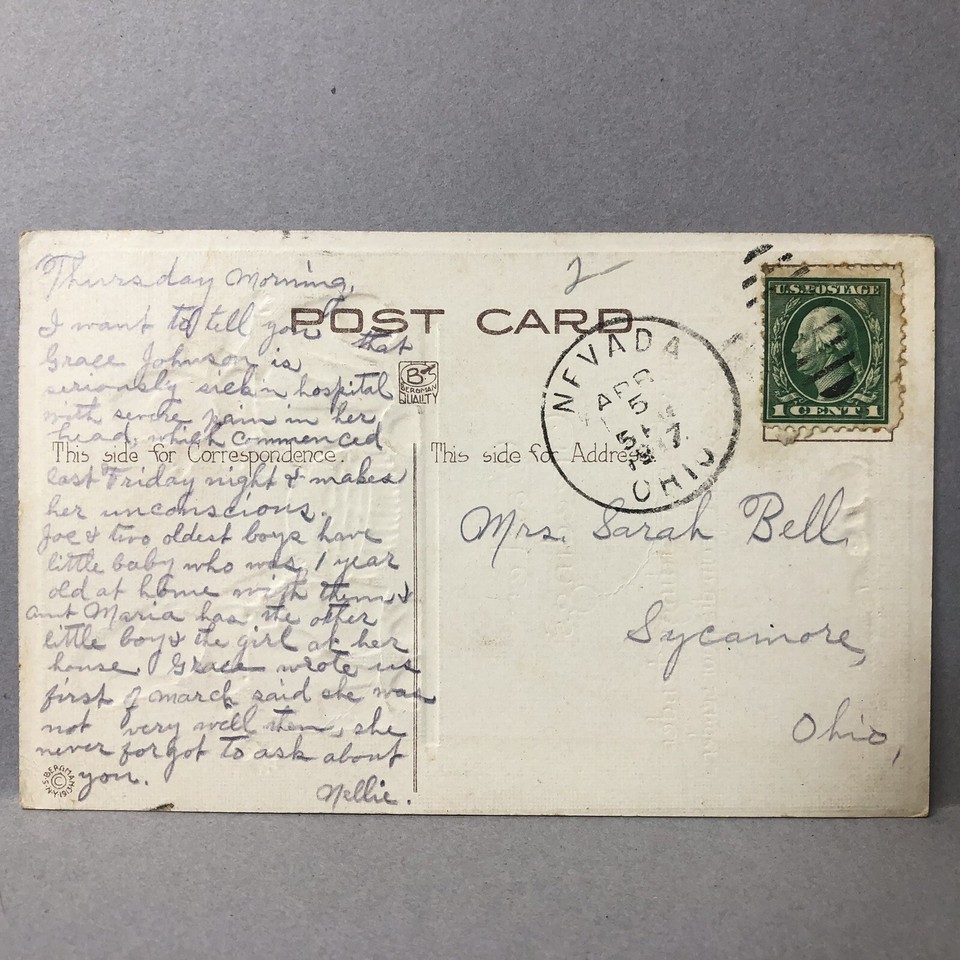 Thursday Morning,
I want to tell you that
Grace Johnson is
seriously sick in hospital
with severe pain in her
head, which commenced
last Friday night & makes
her unconscious.
Joe & two oldest boys have
little baby who was, 1 year
old at home with them &
aunt Maria has the other
little boy & the girl at her
house Grace wrote us
first of march said she was
not very well then, she
never forgot to ask about
you.
Nellie.
2
POST CARD
B
BERGMAN
QUALITY
This side for Correspondence.
This side for Address
NEVADA
APR
5
1917
OHIO
U.S. POSTAGE
1 CENT 1
Mrs. Sarah Bell,
Sycamore,
Ohio,
S. BERGMAN N.Y. 1913
©